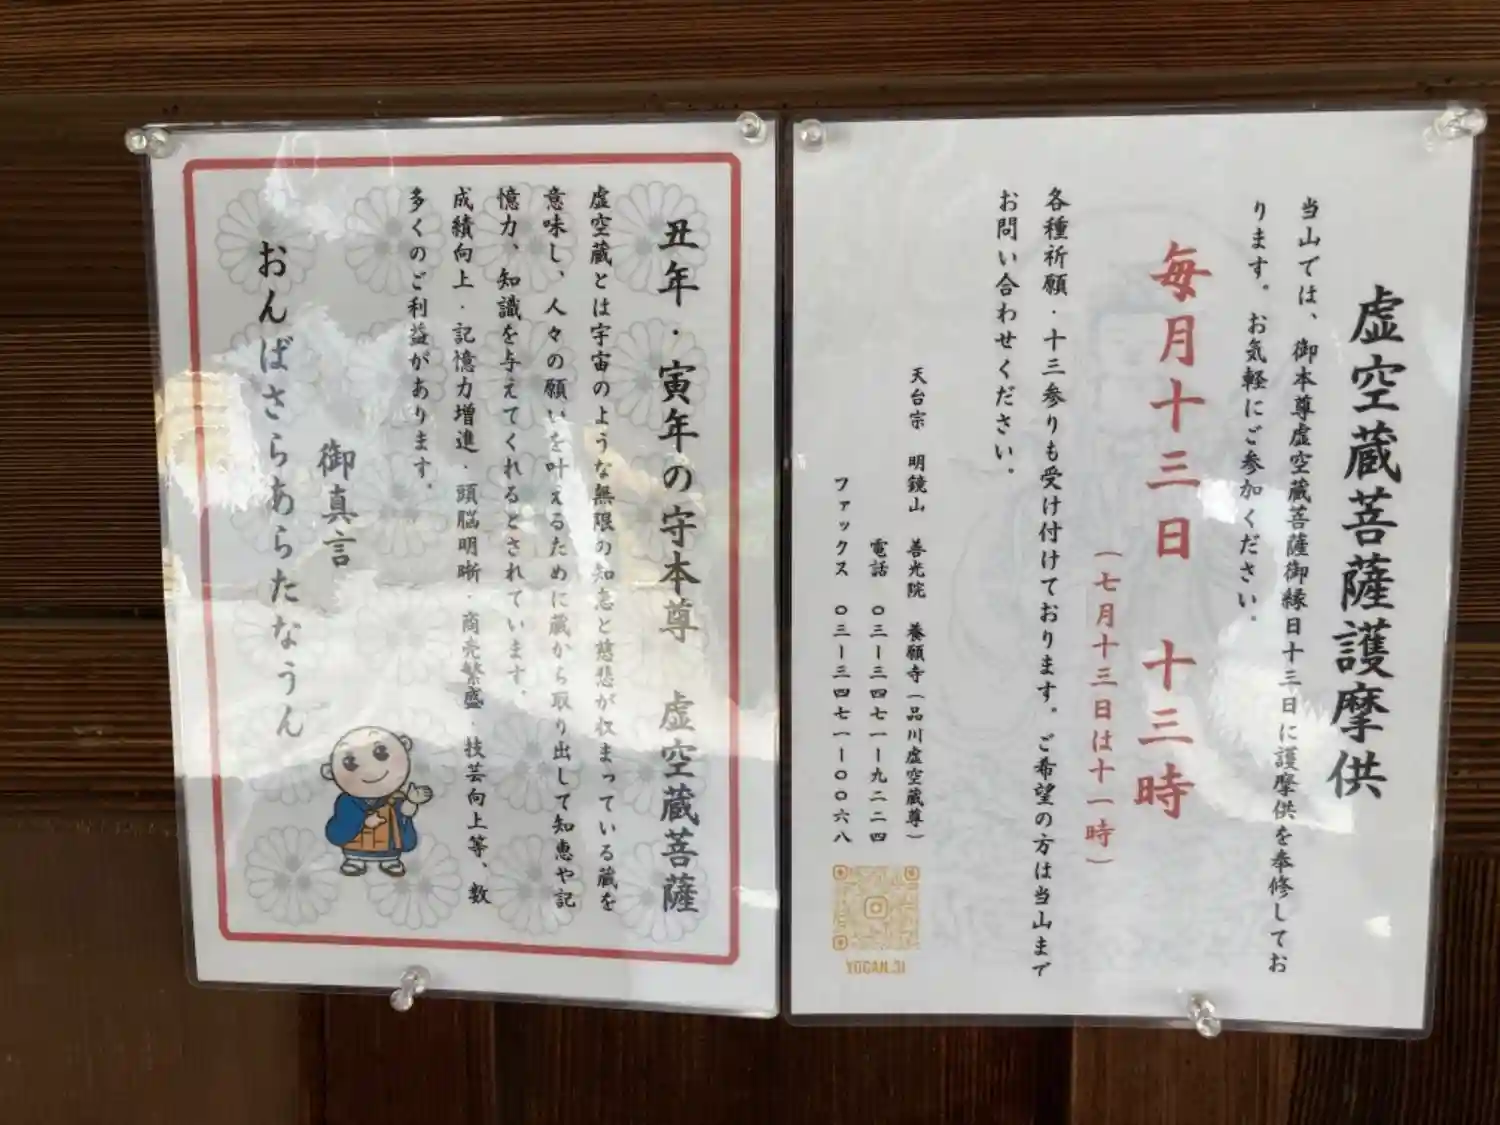 虚空蔵菩薩護摩供
当山では、御本尊虚空蔵菩薩御縁日十三日に護摩供を奉修してお
ります。お気軽にご参加ください。
毎月十三日　十三時
（七月十三日は十一時）
各種祈願・十三参りも受け付けております。ご希望の方は当山まで
お問い合わせください。
天台宗　明鏡山　善光院　養願寺（品川虚空蔵尊）
電話　〇三ー三四七一ー九二二四
ファックス　〇三ー三四七一ー〇〇六八
YOGANJI
丑年・寅年の守本尊　虚空蔵菩薩
虚空蔵とは宇宙のような無限の知恵と慈悲が収まっている蔵を
意味し、人々の願いを叶えるために蔵から取り出して知恵や記
憶力、知識を与えてくれるとされています。
成績向上・記憶力増進・頭脳明晰・商売繁盛・技芸向上等、数
多くのご利益があります。
御真言
おんばさらあらたなうん